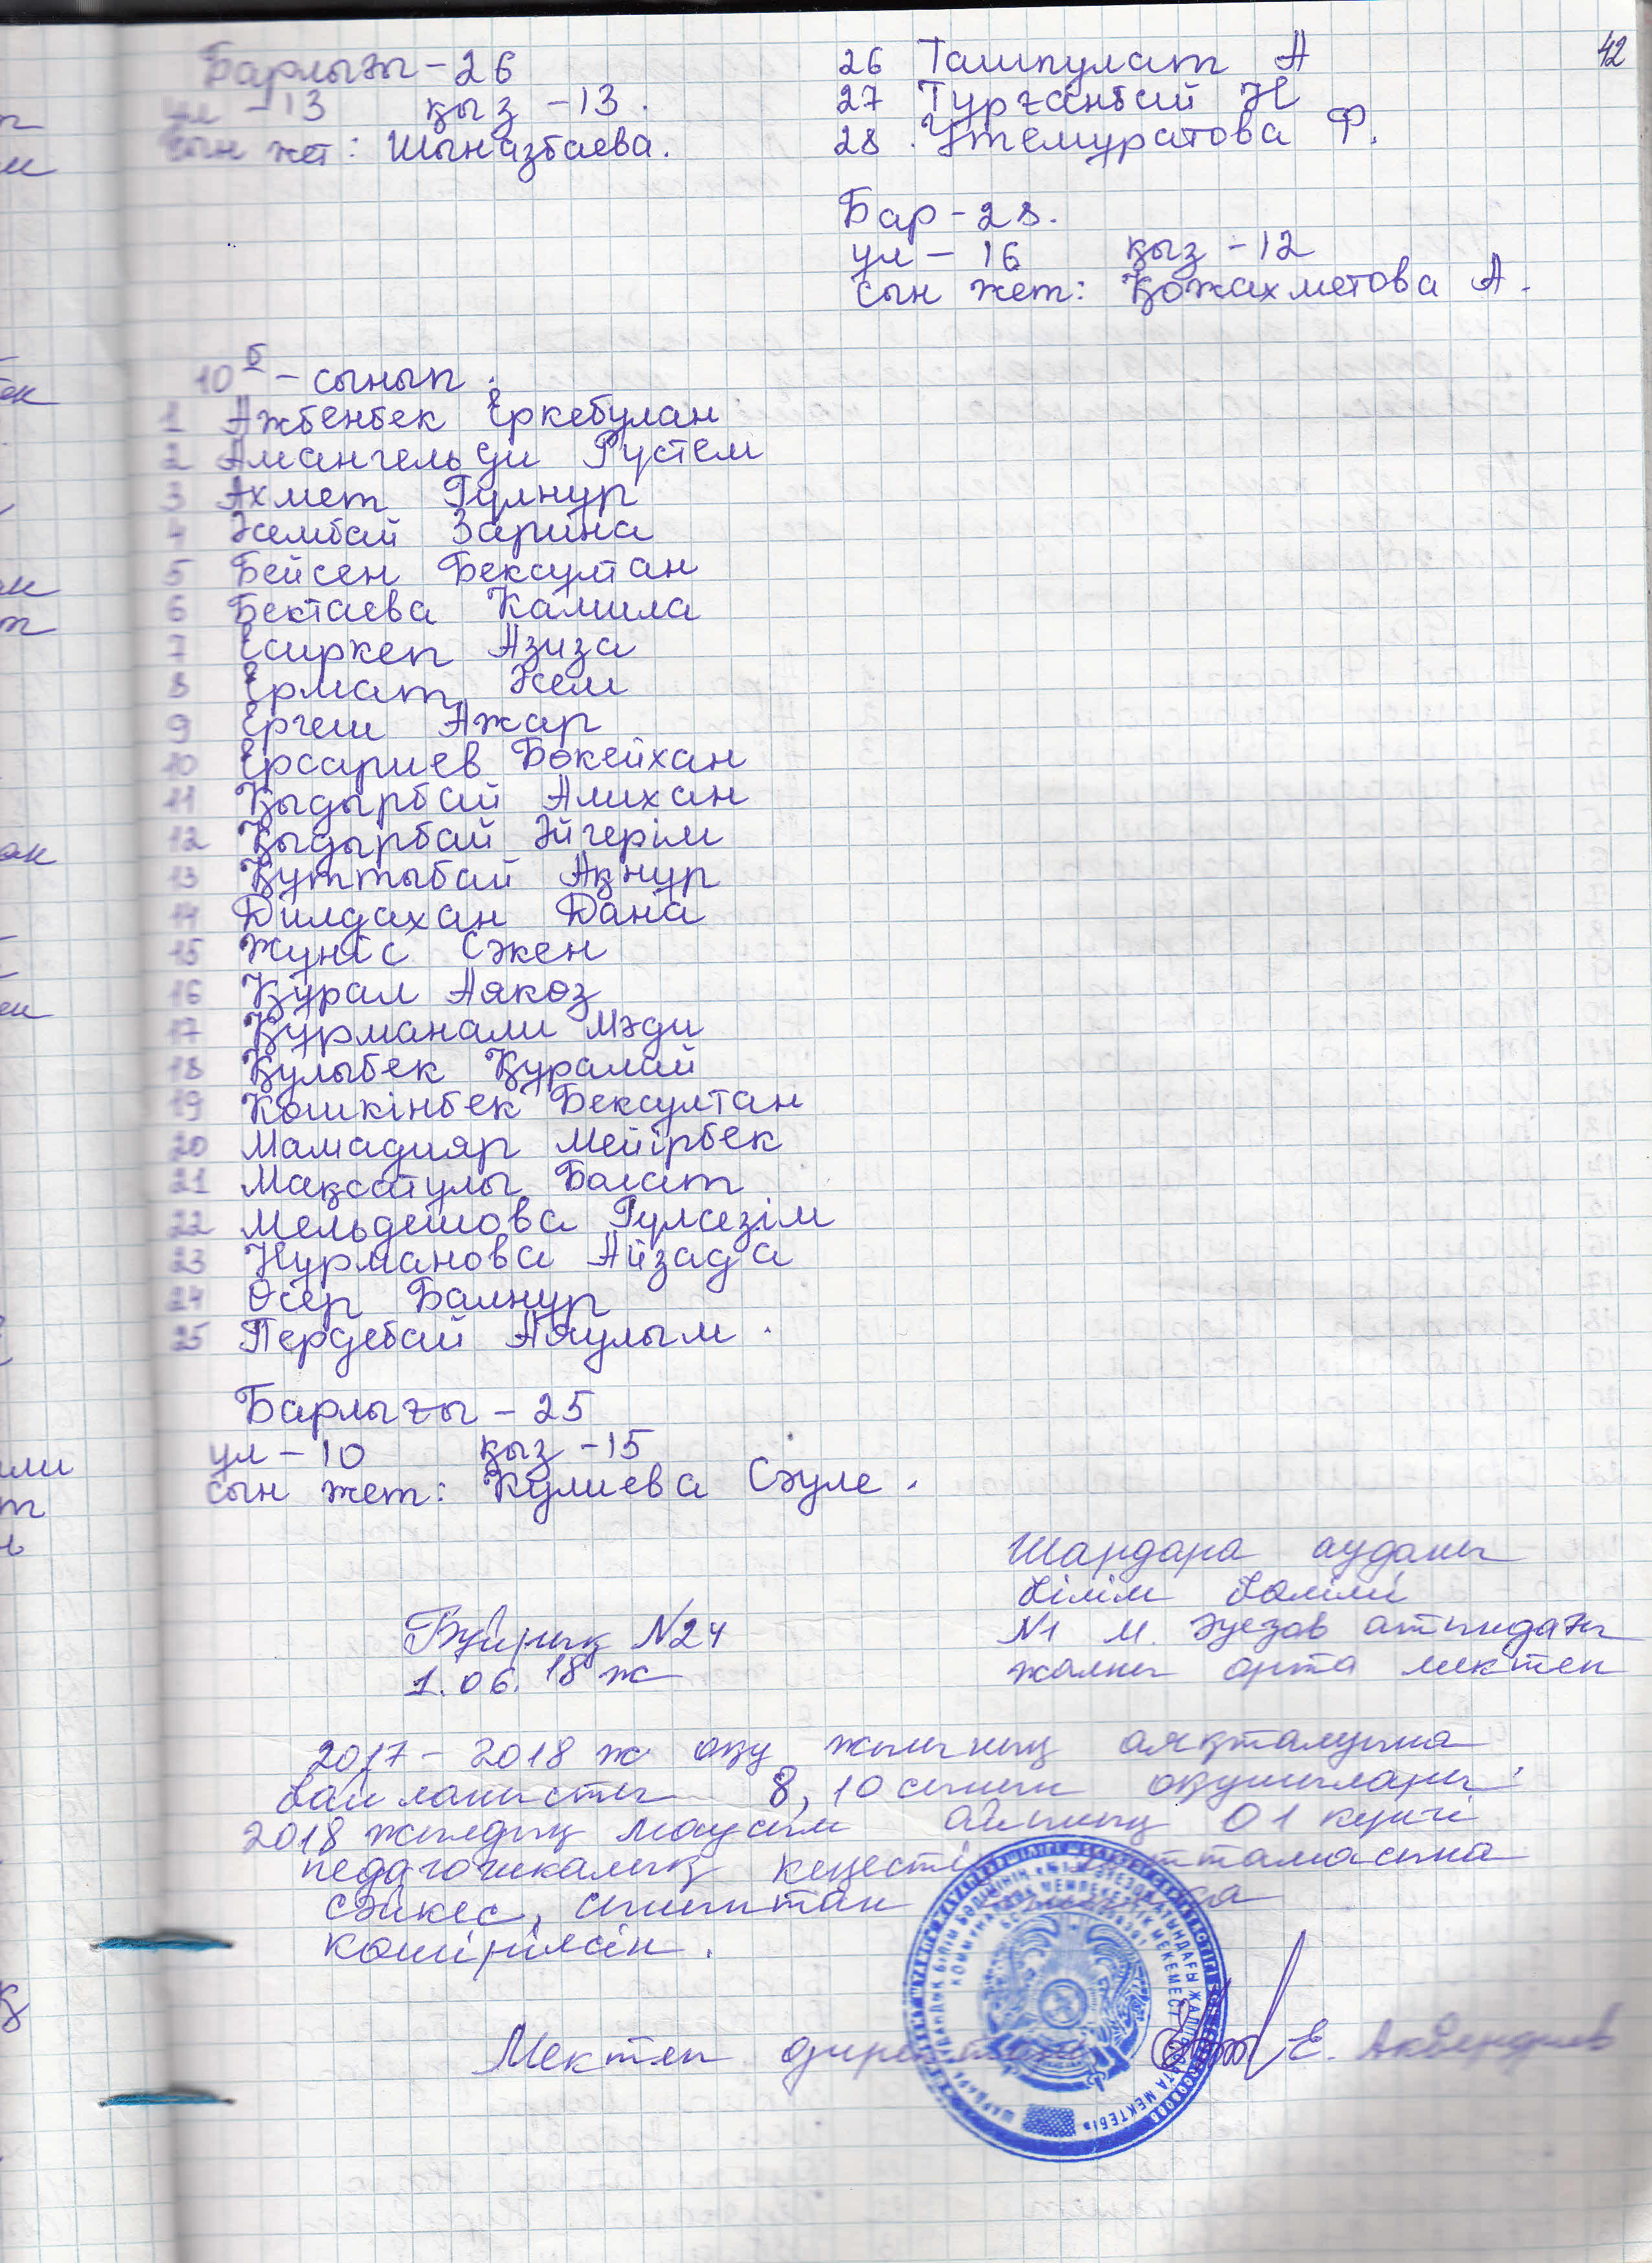 42
Барлығы - 26
ұл - 13 қыз - 13.
сын жет: Шыназбаева.
26 Ташпулат А
27 Тұрғанбай Н
28. Утемуратова Ф.
Бар - 28.
ұл - 16 қыз - 12
сын жет: Қожахметова А.
10 б - сынып.
1 Ажбенбек Еркебулан
2 Амангельди Рустем
3 Ахмет Гүлнур
4 Әлембай Зарина
5 Бейсен Бексултан
6 Бектаева Камила
7 Есиркеп Азиза
8 Ермат Әсем
9 Ергеш Ажар
10 Ерсариев Бөкейхан
11 Қыдырбай Алихан
12 Қыдырбай Әйгерім
13 Құттыбай Ақнур
14 Дилдахан Дана
15 Жүніс Сәкен
16 Құрал Аякөз
17 Құрманали Мәди
18 Құлыбек Құралай
19 Көшкінбек Бексултан
20 Мамадияр Мейірбек
21 Мақсатұлы Болат
22 Мельдешова Гүлсезім
23 Нурманова Айзада
24 Өсер Балнур
25 Пердебай Аяулым.
Барлығы - 25
ұл - 10 қыз - 15
сын жет: Кулиева Сәуле.
Шардара ауданы
білім бөлімі
№1 М. Әуезов атындағы
жалпы орта мектеп
Бұйрық №24
1.06.18 ж
2017 - 2018 ж оқу жылының аяқталуына
байланысты 8, 10 сынып оқушылары
2018 жылдың маусым айының 01 күнгі
педагогикалық кеңестің хаттамасына
сәйкес, сыныптан сыныпқа
көшірілсін.
Мектеп директоры Е. Акбердиев